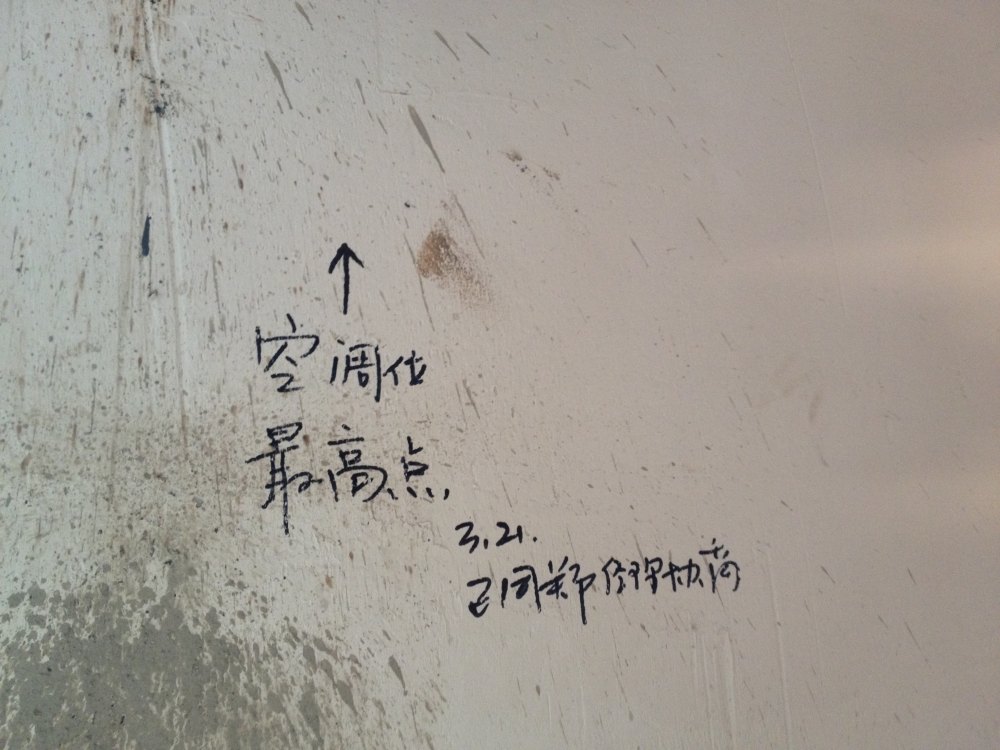 ↑
空调位
最高点
3.21.
已同郑经理协商